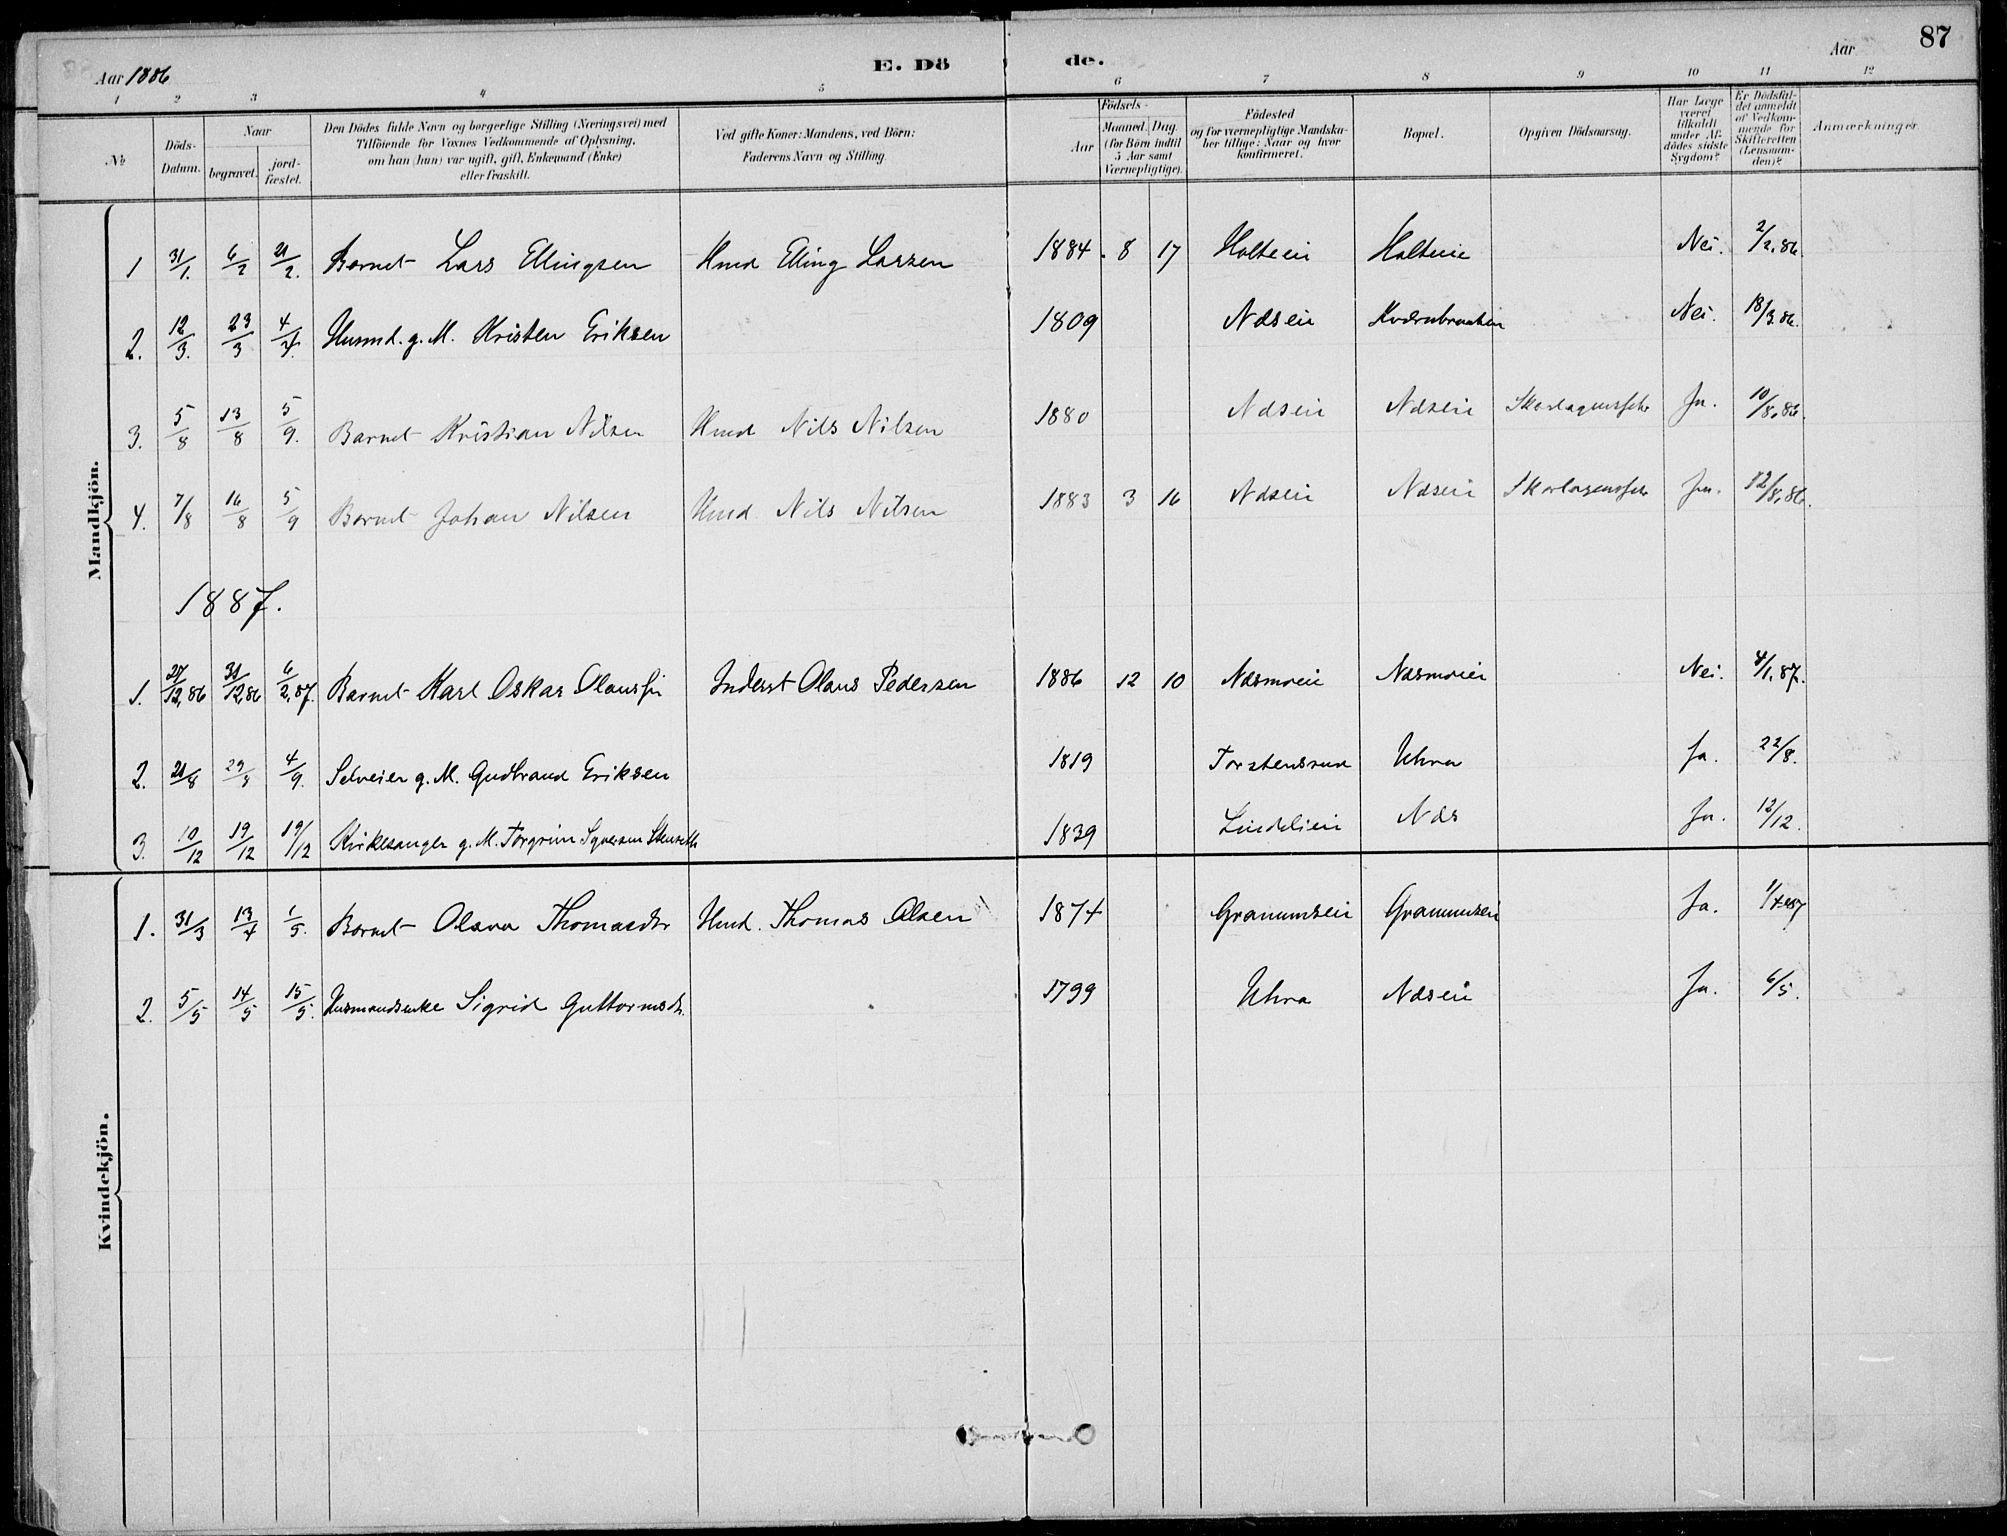 87
Aar 1886 E. Dö de. Aar
1 2 3 4 5 6 7 8 9 10 11 12
№ Döds-Datum. Naar begravet. jord-fæstet. Den Dödes fulde Navn og borgerlige Stilling (Næringsvei) med Tilföiende for Voxnes Vedkommende af Oplysning, om han (hun) var ugift, gift, Enkemand (Enke) eller fraskilt. Ved gifte Koner: Mandens, ved Börn: Faderens Navn og Stilling. Födsels- Aar Maaned. Dag. (for Börn indtil 5 Aar samt Værnepligtige). Födested og for værnepligtige Mandskaber tillige: Naar og hvor konfirmeret. Bopæl. Opgiven Dödsaarsag. Har Læge været tilkaldt under Afdödes sidste Sygdom? Er Dödsfaldet anmeldt af Vedkommende for Skifteretten (Lensmanden)? Anmærkninger.
Mandkjön.
1 31/1. 6/2 21/2. Barnet Lars Ellingsen Hmd Elling Larsen 1884. 8 17 Holteeie Holteie Nei. 2/2.86.
2. 12/3. 23/3 4/4. Husmd. g. M. Kristen Eriksen 1809 Næseie Kværnbraaten Nei. 18/3.86.
3. 5/8 13/8 5/9. Barnet Kristian Nilsen Hmd Nils Nilsen 1880 Næseie Næseie Skarlagensfeber Ja. 10/8.86.
4. 7/8 16/8 5/9 Barnet Johan Nilsen Hmd. Nils Nilsen 1883 3 16 Næseie Næseie Skarlagensfeber Ja. 12/8.86.
1887.
1. 27/12,86 31/12,86 6/2,87. Barnet Karl Oskar Olaussen Inderst Olaus Pedersen 1886 12 10 Næsmoeie Næsmoeie Nei. 4/1.87.
2. 21/8 29/8 4/9. Selveier g. M. Gudbrand Eriksen 1819 Torstensrud Uhra Ja. 22/8.
3. 10/12 19/12 19/12 Kirkesanger g. M. Torgrim Syversen 1839 Lindelien Næs Ja. 12/12.
Kvindekjön.
1. 31/3 13/4 1/5. Barnet Olava Thomasdtr Hmd. Thomas Olsen 1874 Granumseie Granumseie Ja. 1/4 87
2. 5/5 14/5 15/5. Husmandsenke Sigrid Guttormsdtr. 1799 Uhra Næseie Ja. 6/5.